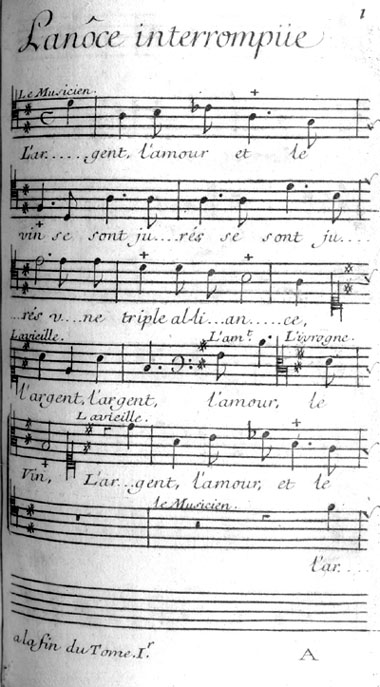 1
La nôce interrompüe
Le Musicien.
L'ar......gent, l'amour et le
vin se sont ju....rés se sont ju....
...rés u...ne triple al-li...an.....ce,
La vieille. L'am.t L'ivrogne.
l'argent, l'argent, l'amour, le
La vieille.
Vin, L'ar...gent, l'amour, et le
le Musicien.
l'ar....
a la fin du Tome. I.r
A